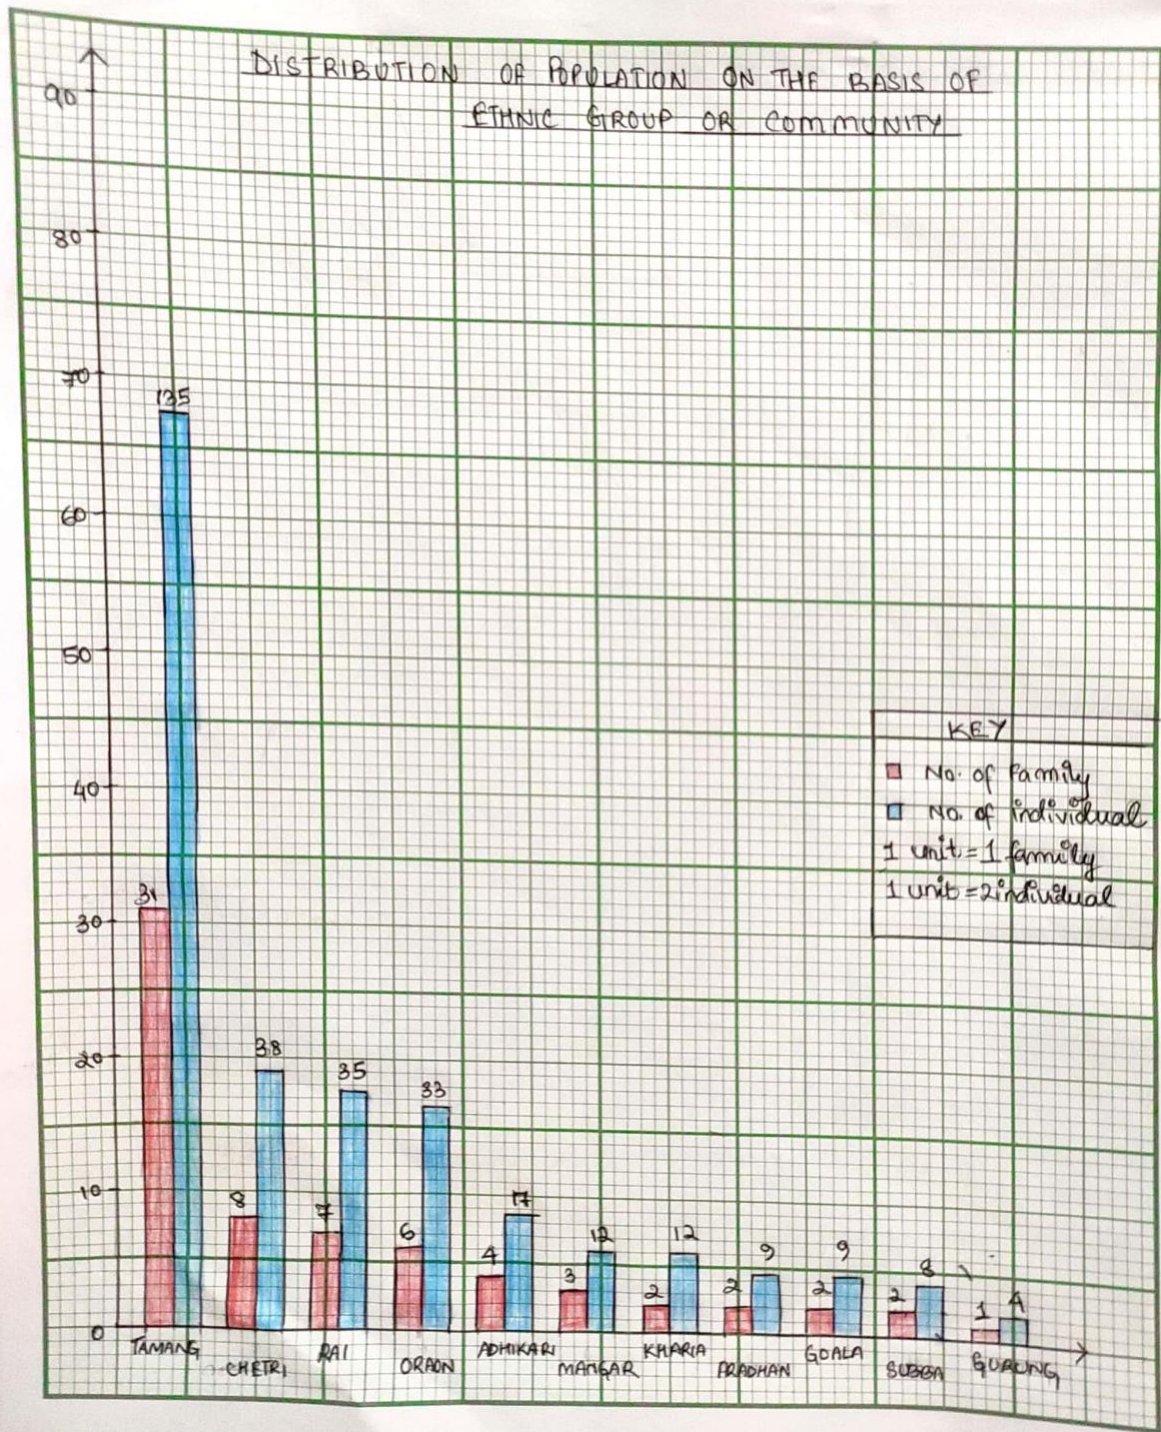 DISTRIBUTION OF POPULATION ON THE BASIS OF
ETHNIC GROUP OR COMMUNITY
90
80
70
60
50
40
30
20
10
0
135
31
38
8
35
7
33
6
17
4
12
3
12
2
9
2
9
2
8
2
4
1
KEY
No. of family
No. of individual
1 unit = 1 family
1 unit = 2 individual
TAMANG
CHETRI
RAI
ORAON
ADHIKARI
MANGAR
KHARIA
PRADHAN
GOALA
SUBBA
GURUNG